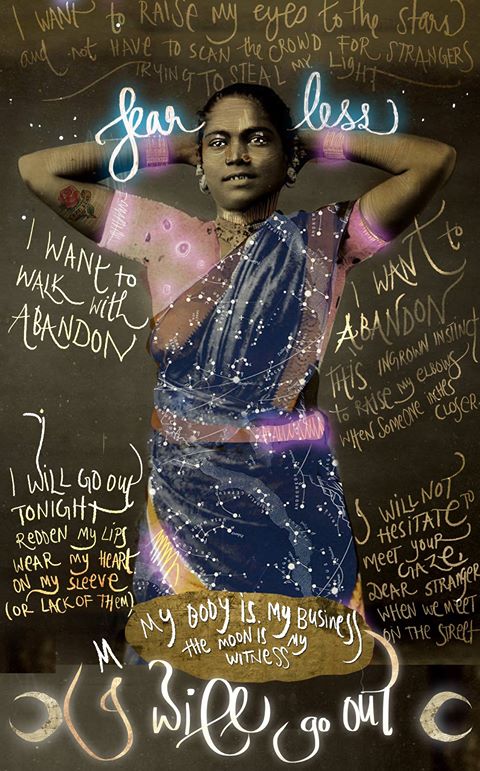 I WANT to RAISE my EYES to the STARS
and not HAVE to SCAN the CROWD FOR STRANGERS
TRYING TO STEAL MY LIGHT
fearless
I WANT to
WALK with
ABANDON
I WANT to
ABANDON
THIS INGROWN INSTINCT
to RAISE my ELBOWS
WHEN SOMEONE INCHES
CLOSER.
I WILL GO OUT
TONIGHT
REDDEN MY LIPS
WEAR MY HEART
ON my SLEEVE
(OR LACK OF THEM)
I WILL NOT
HESITATE to
MEET YOUR
GAZE,
DEAR STRANGER
WHEN WE MEET
ON THE STREET
MY BODY IS MY BUSINESS
the MOON IS MY
WITNESS
I Will go out